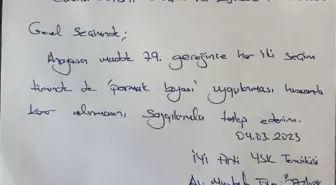 Genel Seçiminde;
Anayasa madde 79. gereğince her iki seçim
türünde de "parmak boyası" uygulaması hususunda
karar alınmasını, saygılarımla talep ederim.
04.03.2023
İYİ Parti YSK Temsilcisi
Av. Mustafa